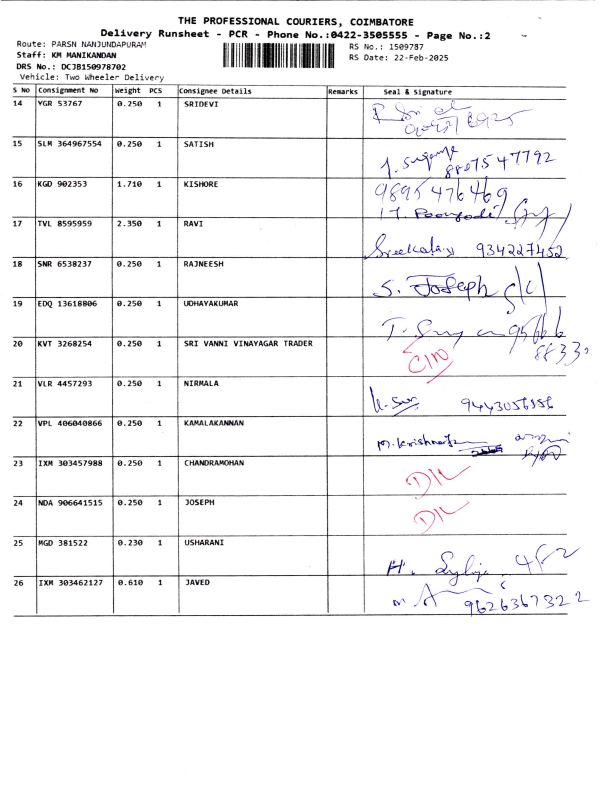 THE PROFESSIONAL COURIERS, COIMBATORE
Delivery Runsheet - PCR - Phone No.:0422-3505555 - Page No.:2
Route: PARSN NANJUNDAPURAM
RS No.: 1509787
Staff: KM MANIKANDAN
RS Date: 22-Feb-2025
DRS No.: DCJB150978702
Vehicle: Two Wheeler Delivery
S No Consignment No Weight PCS Consignee Details Remarks Seal & Signature
14 YGR 53767 0.250 1 SRIDEVI
15 SLM 364967554 0.250 1 SATISH 8807547792
16 KGD 902353 1.710 1 KISHORE 9895476469
17 TVL 8595959 2.350 1 RAVI 934227452
18 SNR 6538237 0.250 1 RAJNEESH S. Joseph
19 EDQ 13618806 0.250 1 UDHAYAKUMAR
20 KVT 3268254 0.250 1 SRI VANNI VINAYAGAR TRADER
21 VLR 4457293 0.250 1 NIRMALA
22 VPL 406040866 0.250 1 KAMALAKANNAN
23 IXM 303457988 0.250 1 CHANDRAMOHAN
24 NDA 906641515 0.250 1 JOSEPH
25 MGD 381522 0.230 1 USHARANI
26 IXM 303462127 0.610 1 JAVED 9626367322